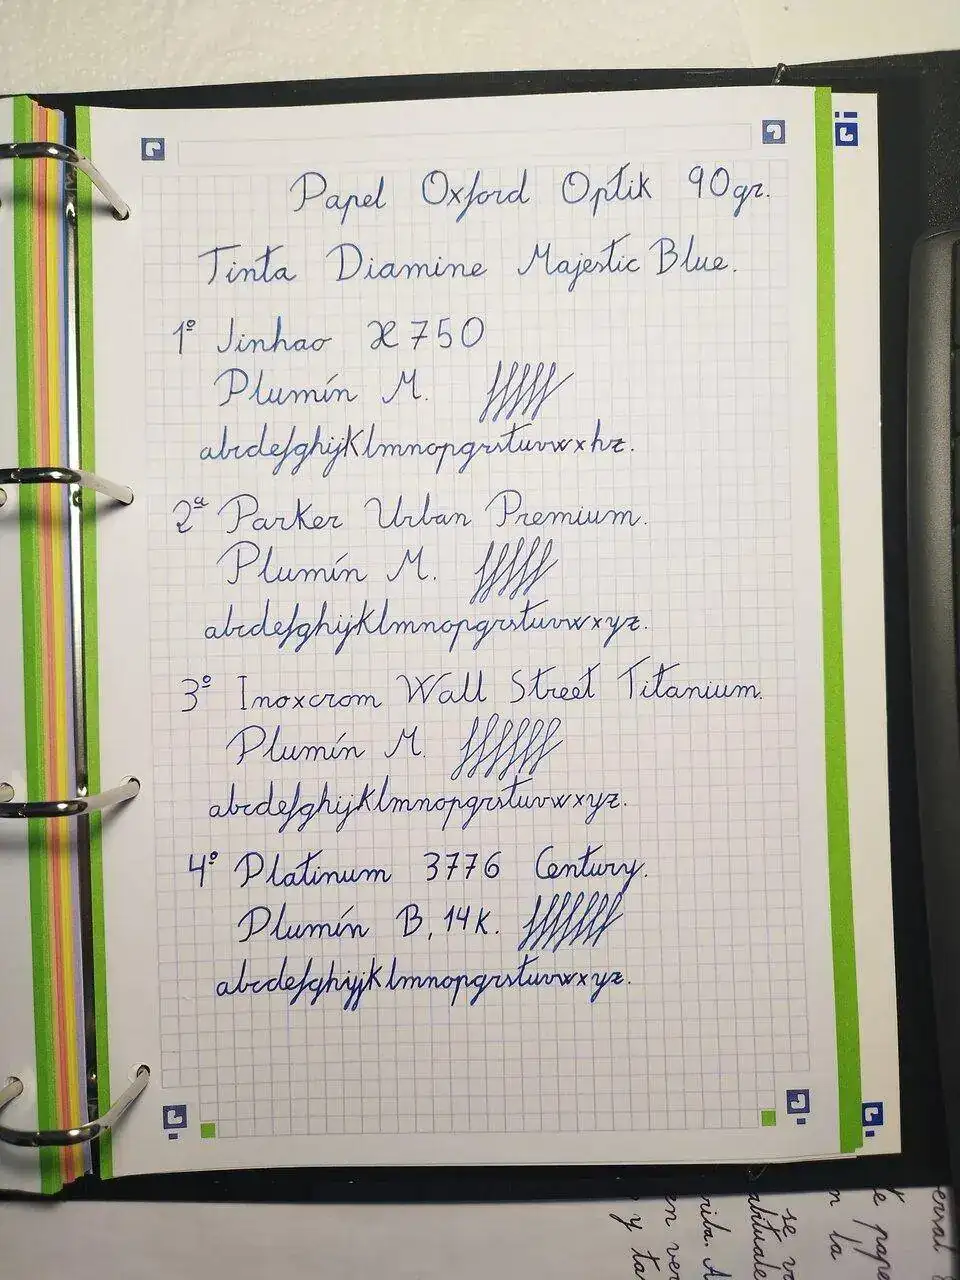 Papel Oxford Optik 90gr.
Tinta Diamine Majestic Blue.
1º Jinhao X750
Plumín M.
abcdefghijklmnopqrstuvwxhz.
2ª Parker Urban Premium.
Plumín M.
abcdefghijklmnopqrstuvwxyz.
3º Inoxcrom Wall Street Titanium.
Plumín M.
abcdefghijklmnopqrstuvwxyz.
4º Platinum 3776 Century.
Plumín B, 14K.
abcdefghijklmnopqrstuvwxyz.
n la
se
y ta